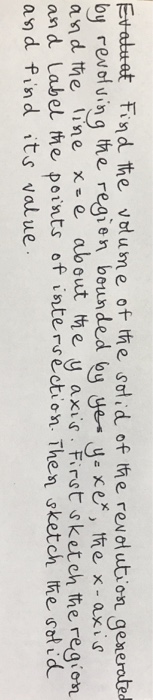 Evaluat Find the volume of the solid of the revolution generated
by revolving the region bounded by ye y = xeˣ, the x-axis
and the line x = e about the y axis. First sketch the region
and Label the points of intersection. Then sketch the solid
and find its value.